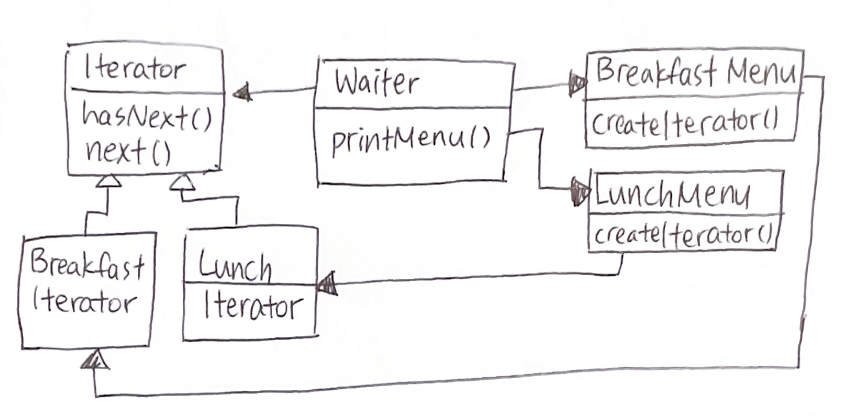 Iterator
hasNext()
next()
Waiter
printMenu()
Breakfast Menu
createIterator()
LunchMenu
createIterator()
Breakfast
Iterator
Lunch
Iterator